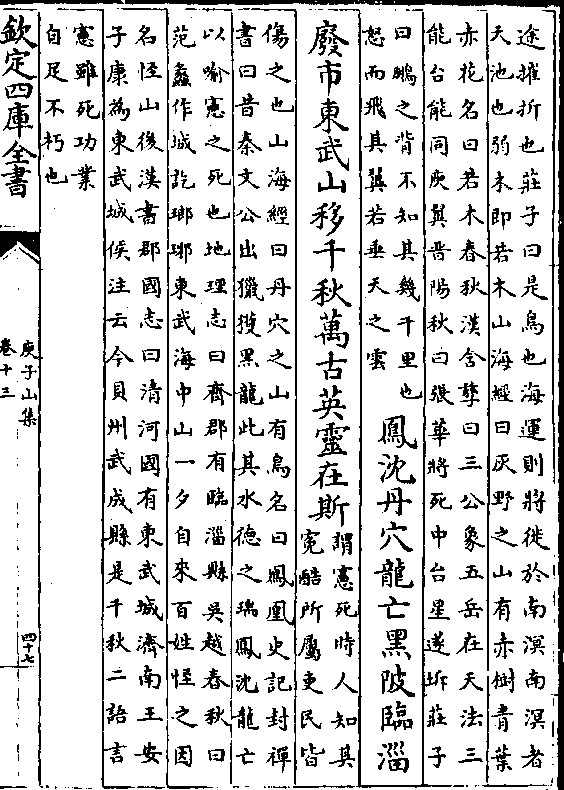 途摧折也莊子曰是鳥也海運則將徙於南溟南溟者
天池也弱木即若木山海經曰灰野之山有赤樹青葉
赤花名曰若木春秋漢含孳曰三公象五岳在天法三
能台能同庾翼晉陽秋曰張華將死中台星遂坼莊子
曰鵬之背不知其幾千里也
怒而飛其翼若垂天之雲
鳳沈丹穴龍亡黑陂臨淄
廢市東武山移千秋萬古英靈在斯
謂憲死時人知其
寃酷所屬吏民皆
傷之也山海經曰丹穴之山有鳥名曰鳳凰史記封禪
書曰昔秦文公出獵獲黑龍此其水德之瑞鳳沈龍亡
以喻憲之死也地理志曰齊郡有臨淄縣吳越春秋曰
范蠡作城訖瑯琊東武海中山一夕自來百姓怪之因
名怪山後漢書郡國志曰清河國有東武城濟南王安
子康為東武城侯注云今貝州武成縣是千秋二語言
憲雖死功業
自足不朽也
欽定四庫全書
庾子山集
卷十三
四十七